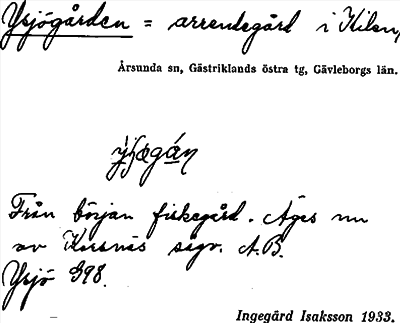 Ysjögården = arrendegård i Kilen,
Årsunda sn, Gästriklands östra tg, Gävleborgs län.
Från början fiskegård. Äges nu
av Korsnäs sågv. A.B.
Ysjö 898.
Ingegärd Isaksson 1933.